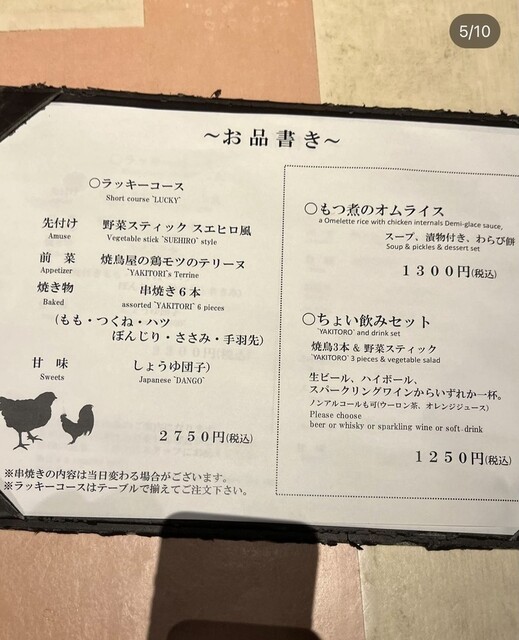 5/10
~お品書き~
○ラッキーコース
Short course "LUCKY"
先付け 野菜スティック スエヒロ風
Amuse Vegetable stick "SUEHIRO" style
前 菜 焼鳥屋の鶏モツのテリーヌ
Appetizer "YAKITORI"s Terrine
焼き物 串焼き６本
Baked assorted "YAKITORI" 6 pieces
(もも・つくね・ハツ
ぼんじり・ささみ・手羽先)
甘 味 しょうゆ団子)
Sweets Japanese "DANGO"
２７５０円(税込)
※串焼きの内容は当日変わる場合がございます。
※ラッキーコースはテーブルで揃えてご注文下さい。
○もつ煮のオムライス
a Omelette rice with chicken internals Demi-glace sauce,
スープ、漬物付き、わらび餅
Soup & pickles & dessert set
１３００円(税込)
○ちょい飲みセット
"YAKITORO" and drink set
焼鳥3本 & 野菜スティック
"YAKITORO" 3 pieces & vegetable salad
生ビール、ハイボール、
スパークリングワインからいずれか一杯。
ノンアルコールも可(ウーロン茶、オレンジジュース)
Please choose
beer or whisky or sparkling wine or soft-drink
１２５０円(税込)